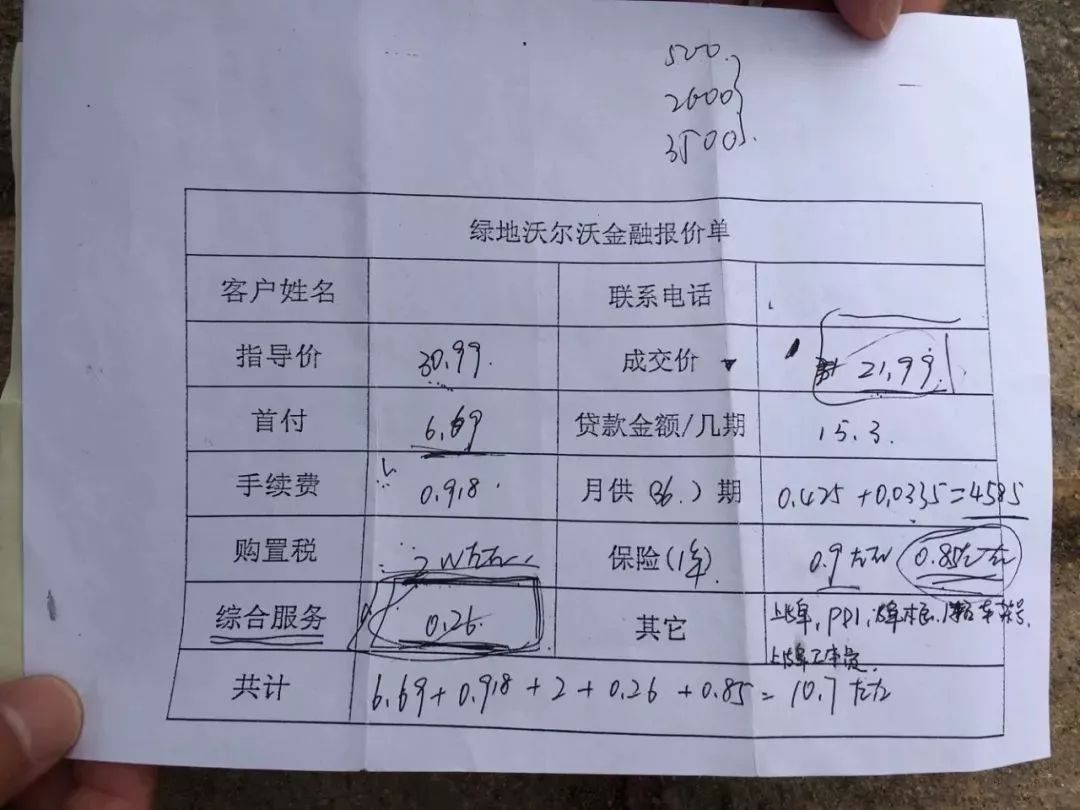 500
2600
3500
绿地沃尔沃金融报价单
客户姓名 联系电话
指导价 30.99 成交价 21.99
首付 6.69 贷款金额/几期 15.3.
手续费 0.918 月供(36.)期 0.425+0.0335=4585
购置税 2W左右 保险(1年) 0.9左右 0.85左右
综合服务 0.26 其它 上牌,PDI,
共计 6.69+0.918+2+0.26+0.85=10.7左右